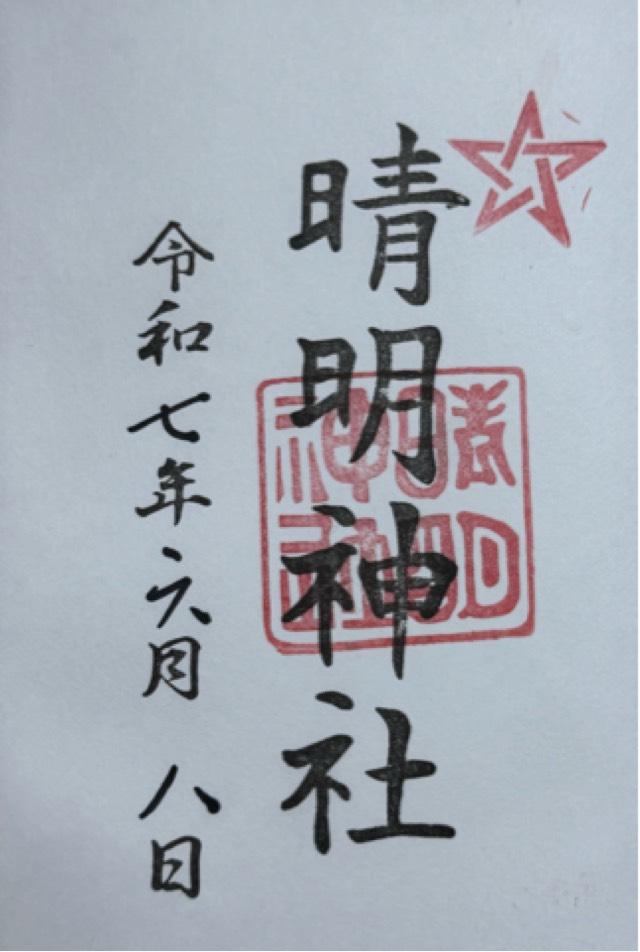 晴明神社
晴明
神社
令和七年六月八日